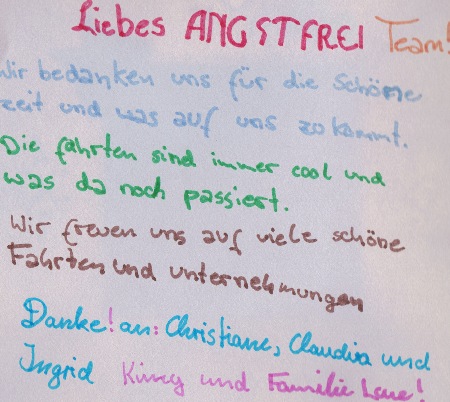 Liebes ANGSTFREI Team!
Wir bedanken uns für die Schöne
zeit und was auf uns zo kommt.
Die fahrten sind immer cool und
was da noch passiert.
Wir freuen uns auf viele schöne
Fahrten und unternehmungen
Danke! an: Christiane, Claudia und
Ingrid und Familie